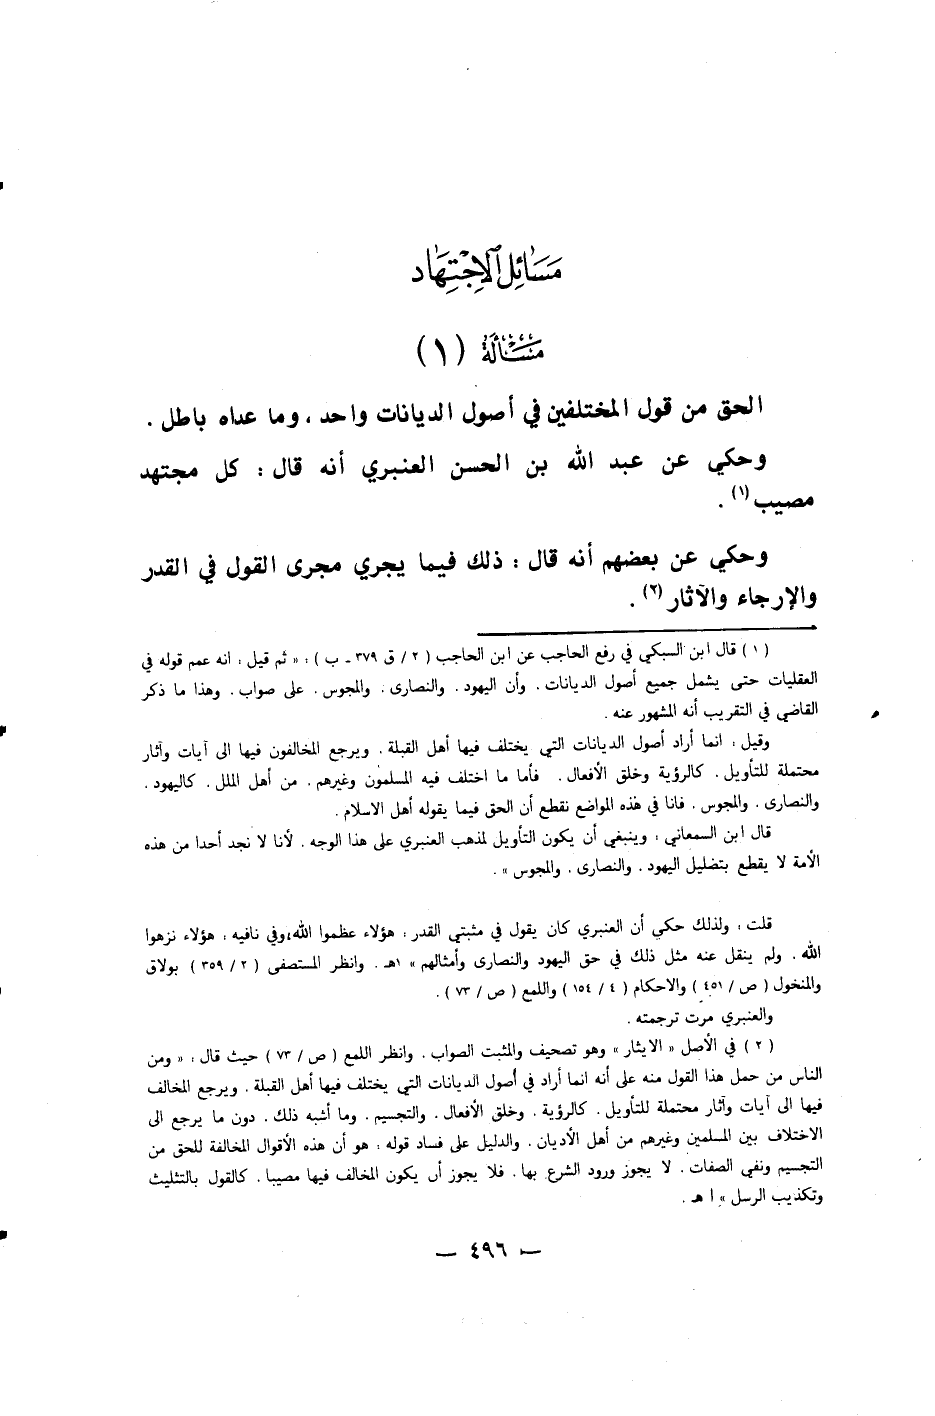 مَسَائِل الاِجْتِهَاد
مَسْأَلَة (١)
الحق من قول المختلفين في أصول الديانات واحد ، وما عداه باطل .
وحكي عن عبد الله بن الحسن العنبري أنه قال : كل مجتهد
مصيب (١) .
وحكي عن بعضهم أنه قال : ذلك فيما يجري مجرى القول في القدر
والإرجاء والآثار (٢) .
( ١ ) قال ابن السبكي في رفع الحاجب عن ابن الحاجب ( ٢ / ق ٣٧٩ ـ ب ) : « ثم قيل : انه عمم قوله في
العقليات حتى يشمل جميع أصول الديانات . وأن اليهود . والنصارى . والمجوس . على صواب . وهذا ما ذكر
القاضي في التقريب أنه المشهور عنه .
وقيل : انما أراد أصول الديانات التي يختلف فيها أهل القبلة . ويرجع المخالفون فيها الى آيات وآثار
محتملة للتأويل . كالرؤية وخلق الأفعال . فأما ما اختلف فيه المسلمون وغيرهم . من أهل الملل . كاليهود .
والنصارى . والمجوس . فانا في هذه المواضع نقطع أن الحق فيما يقوله أهل الاسلام .
قال ابن السمعاني : وينبغي أن يكون التأويل لمذهب العنبري على هذا الوجه . لأنا لا نجد أحدا من هذه
الأمة لا يقطع بتضليل اليهود . والنصارى . والمجوس » .
قلت : ولذلك حكي أن العنبري كان يقول في مثبتي القدر : هؤلاء عظموا الله،وفي نافيه : هؤلاء نزهوا
الله . ولم ينقل عنه مثل ذلك في حق اليهود والنصارى وأمثالهم » ١هـ . وانظر المستصفى ( ٢ / ٣٥٩ ) بولاق
والمنخول ( ص / ٤٥١ ) والاحكام ( ٤ / ١٥٤ ) واللمع ( ص / ٧٣ ) .
والعنبري مرّت ترجمته .
( ٢ ) في الأصل « الايثار » وهو تصحيف والمثبت الصواب . وانظر اللمع ( ص / ٧٣ ) حيث قال : « ومن
الناس من حمل هذا القول منه على أنه انما أراد في أصول الديانات التي يختلف فيها أهل القبلة . ويرجع المخالف
فيها الى آيات وآثار محتملة للتأويل . كالرؤية . وخلق الأفعال . والتجسيم . وما أشبه ذلك . دون ما يرجع الى
الاختلاف بين المسلمين وغيرهم من أهل الأديان . والدليل على فساد قوله : هو أن هذه الأقوال المخالفة للحق من
التجسيم ونفي الصفات . لا يجوز ورود الشرع بها . فلا يجوز أن يكون المخالف فيها مصيبا . كالقول بالتثليث
وتكذيب الرسل » ا هـ .
— ٤٩٦ —